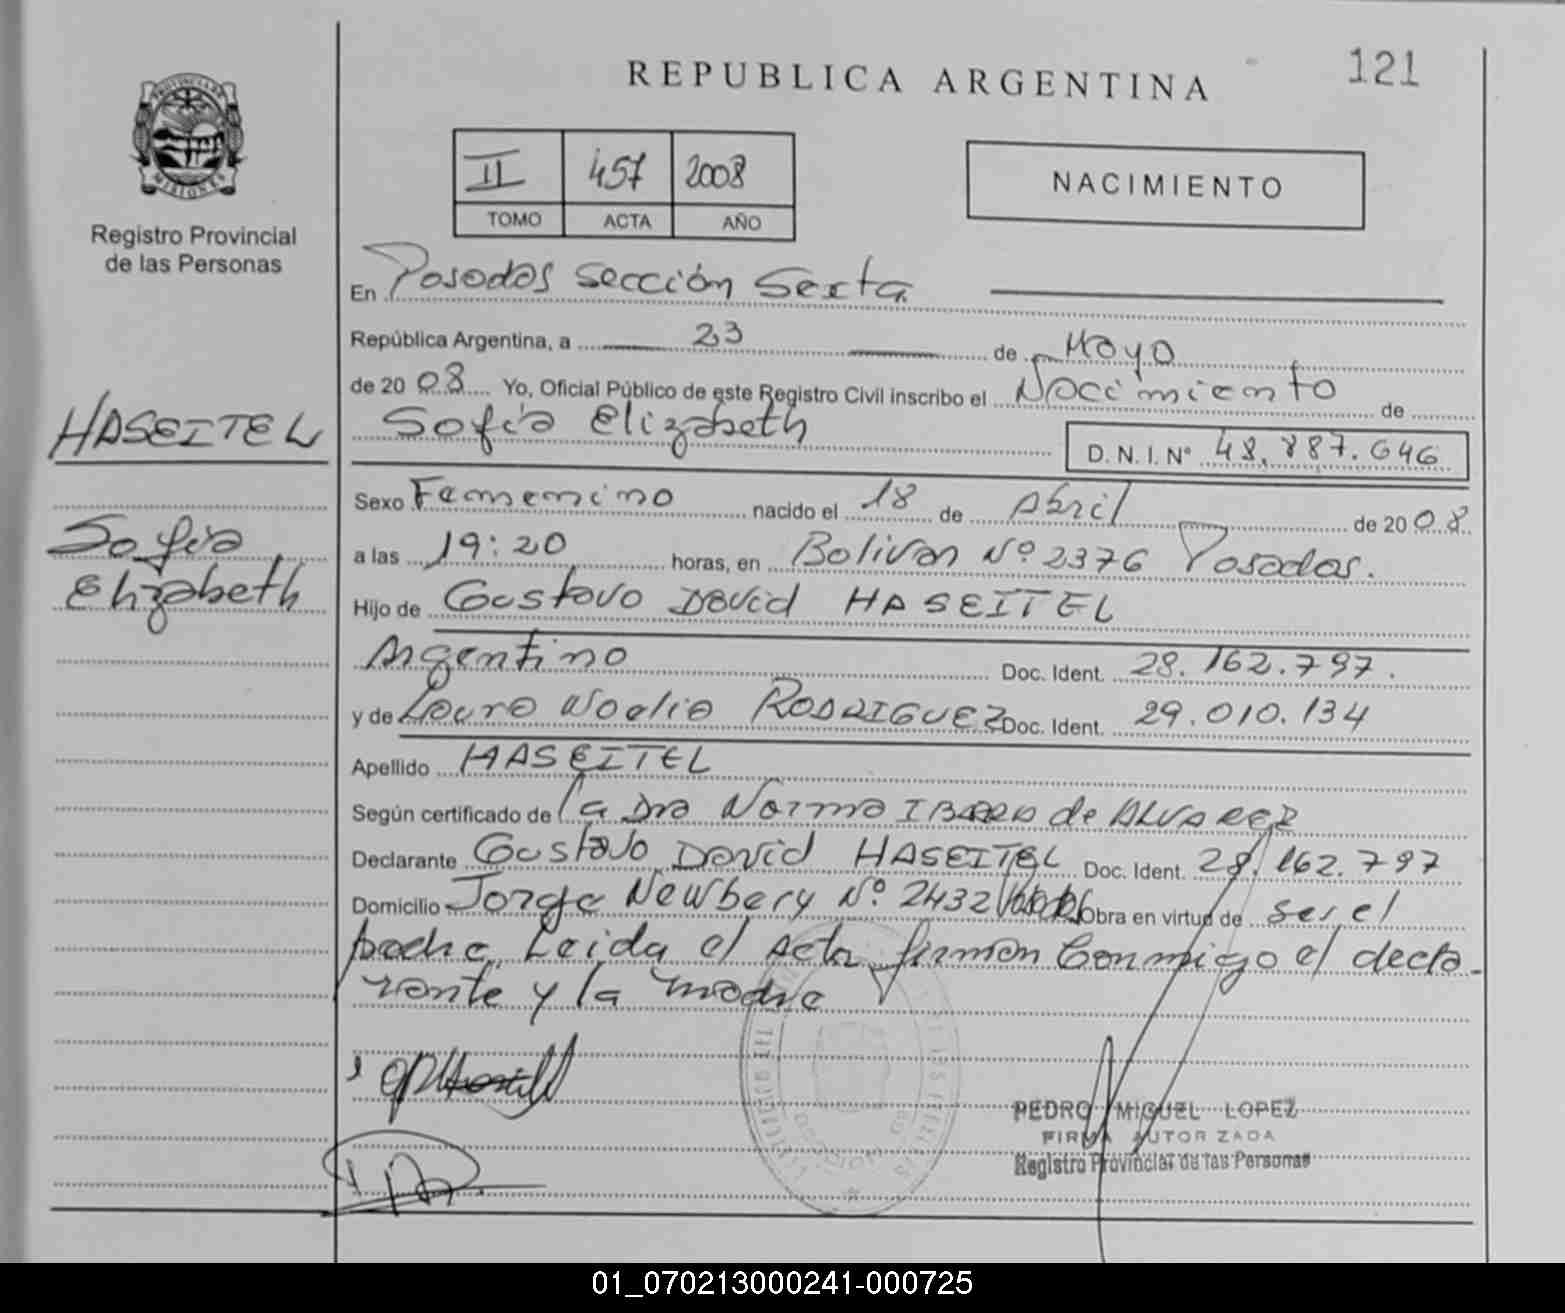 REPUBLICA ARGENTINA
121
PROVINCIA DE MISIONES
Registro Provincial
de las Personas
II 457 2008
TOMO ACTA AÑO
NACIMIENTO
En Posadas Sección Sexta
República Argentina, a 23 de Mayo
de 2008 Yo, Oficial Público de este Registro Civil inscribo el Nacimiento de
Sofía Elizabeth D.N.I. Nº 48.887.646
HASEITEL
Sofía
Elizabeth
Sexo Femenino nacido el 18 de Abril de 2008
a las 19:20 horas, en Bolivar Nº 2376 Posadas.
Hijo de Gustavo David HASEITEL
Argentino Doc. Ident. 28.162.797.
y de Laura Noelia RODRIGUEZ Doc. Ident. 29.010.134
Apellido HASEITEL
Según certificado de la Dra Norma IBARRA de ALVAREZ
Declarante Gustavo David HASEITEL Doc. Ident. 28.162.797
Domicilio Jorge Newbery Nº 2432 Obra en virtud de ser el
padre. Leida el Acta firman Conmigo el decla-
rante y la madre
PEDRO MIGUEL LOPEZ
FIRMA AUTORIZADA
Registro Provincial de las Personas
01_070213000241-000725